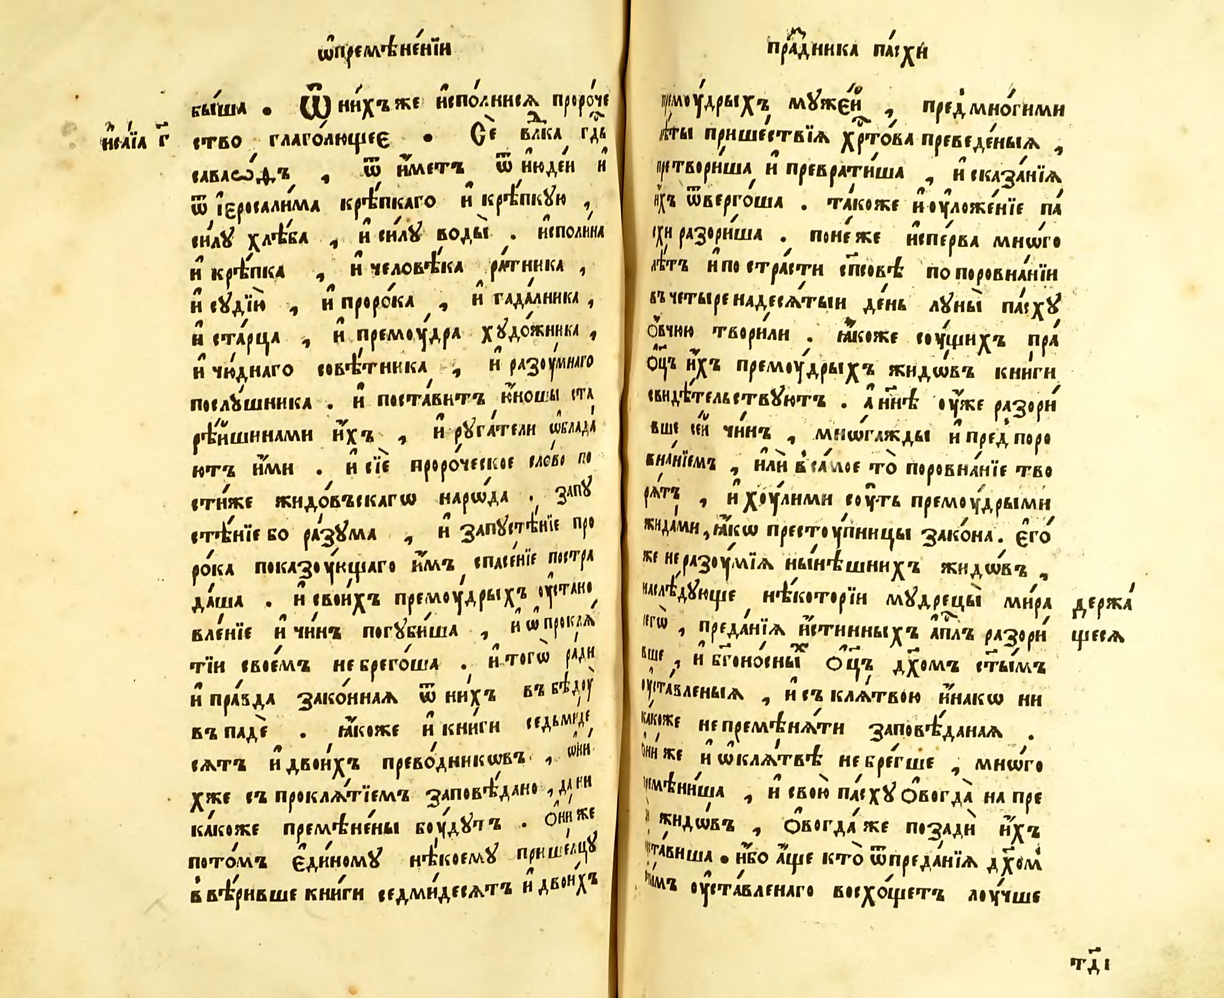 ѡ҆премѣне́нїи
бы́ша . Ѿ ни́хъже и҆спо́лнисѧ проро́че
и҆са́їа г҃
ство глаго́лющеє . Се̑ влⷣка гдⷭ҇ь
саваѡ́ѳъ , ѿ и҆́метъ ѿ і҆ю҆де́и и҆
ѿ і҆єросали́ма крѣ́пкаго и҆ крѣ́пкую ,
си́лу хлѣ́ба , и҆ си́лу воды̀ . и҆сполина
и҆ крѣ́пка , и҆ человѣ́ка ра́тника ,
и҆ судїю̀ , и҆ проро́ка , и҆ гада́лника ,
и҆ ста́рца , и҆ премоу́дра худо́жника ,
и҆ чю́днаго совѣ́тника , и҆ разоу́мнаго
послу́шника . и҆ поста́витъ ю҆́ношы ста
рѣ́йшинами и҆́хъ , и҆ руга́тели ѡ҆блада́
ютъ и҆́ми . и҆ сїѐ проро́ческое сло́во по
сти́же жидо́въскагѡ наро́да . запу
стѣ́нїе бо ра́зума , и҆ запустѣ́нїе про
ро́ка показоу́ющаго и҆́мъ спасе́нїе постра
да́ша . и҆ свои́хъ премоу́дрыхъ оу҆стано
вле́нїе и҆ чи́нъ погуби́ша , и҆ ѡ҆ проклѧ́
тїи свое́мъ не брего́ша . и҆ тогѡ̀ ра́ди
и҆ пра́вда зако́ннаѧ ѿ ни́хъ въ бѣ́доу
въ падѐ . ꙗ҆́коже и҆ кни́ги седьмиде
сѧтъ и҆ двои́хъ прево́дникѡвъ , ѡ҆ни́
хже съ проклѧ́тїемъ заповѣ́дано , да ни
ка́коже премѣне́ны боу́дутъ . О҆ни́же
пото́мъ є҆ди́ному нѣ́коему пришелцу
в̾вѣ́ривше кни́ги седмидесѧтъ и҆ двои́хъ
пра́здника па́схи
премоу́дрыхъ муже́й , пред̾ мно́гими
лѣ́ты прише́ствїѧ хрⷭ҇то́ва преведе́ныѧ ,
претвори́ша и҆ преврати́ша , и҆ сказа́нїѧ
и҆́хъ ѿверго́ша . та́коже и҆ оу҆ложе́нїе па́
схи разори́ша . поне́же и҆спе́рва мнѡ́го
лѣ́тъ и҆ по стра́сти сп҃совѣ по поровна́нїи
въ четыре надесѧ́тыи де́нь луны̀ па́сху
О҆́вчюю твори́ли . ꙗ҆́коже соу́щихъ пра́
О҆ц҃ъ и҆́хъ премоу́дрыхъ жидѡ́въ кни́ги
свидѣ́тельствуютъ . а҆ нн҃ѣ оу҆́же разори́
вше се́й чи́нъ , мнѡ́гажды и҆ пред̾ поро
вна́нїемъ , и҆лѝ в̾ са́мое то̀ поровна́нїе тво
рѧ́тъ , и҆ хоу́лими соу́ть премоу́дрыми
жида́ми , ꙗ҆́кѡ престоу́пницы зако́на . є҆го́
же не разоу́мїѧ ны́нѣшнихъ жидѡ́въ ,
наслѣ́дующе нѣ́которїи мудрецы̀ ми́ра держа́
сегѡ̀ , преда́нїѧ и҆́стинныхъ а҆пⷭ҇лъ разори́ щесѧ
вше , и҆ бг҃оно́сныⷯ О҆ц҃ъ дх҃омъ ст҃ы́мъ
оу҆ста́вленыѧ , и҆ съ клѧ́твою и҆́накѡ ни
ка́коже не премѣнѧ́ти заповѣ́данаѧ .
О҆ни́ же и҆ ѡ҆ клѧ́твѣ не бре́гше , мнѡ́го
премѣни́ша , и҆ свою̀ па́сху О҆вогда̀ на пре
жидѡ́въ , О҆вогда́же позадѝ и҆́хъ
оу҆ста́виша . и҆́бо а҆́ще кто̀ ѿ преда́нїѧ дх҃оⷨ
ст҃ы́мъ оу҆ста́вленаго восхо́щетъ лоу́чше
тд҃і